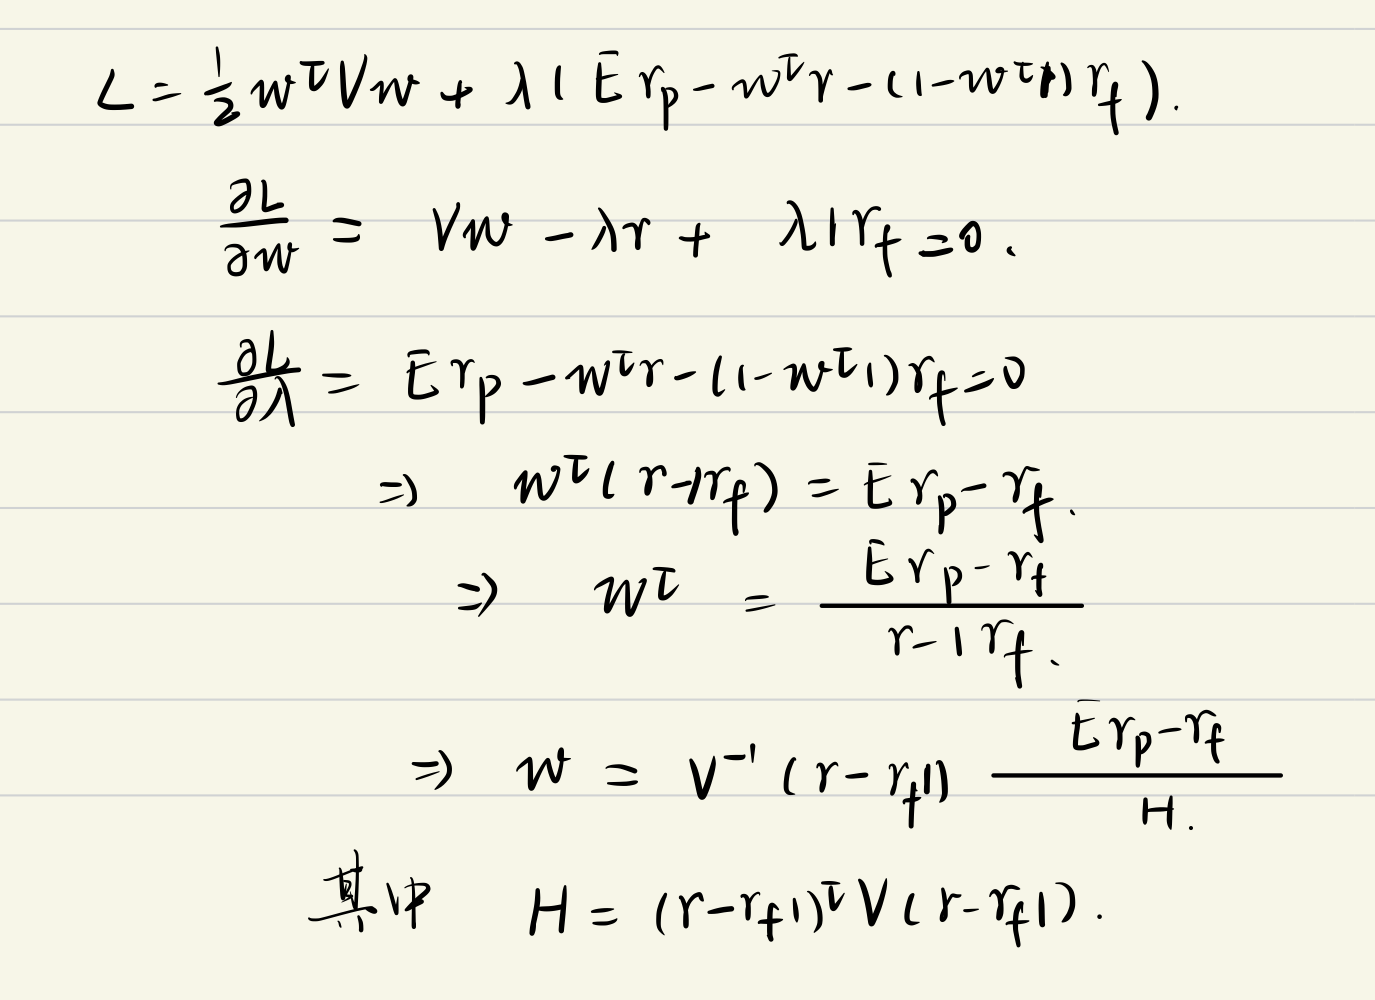 L = 1/2 w^τ V w + λ ( E r_p - w^τ r - (1 - w^τ 1) r_f ).
∂L/∂w = V w - λ r + λ 1 r_f = 0.
∂L/∂λ = E r_p - w^τ r - (1 - w^τ 1) r_f = 0
⇒ w^τ ( r - 1 r_f ) = E r_p - r_f.
⇒ w^τ = (E r_p - r_f)/(r - 1 r_f).
⇒ w = V^-1 ( r - r_f 1) (E r_p - r_f)/H.
其中 H = (r - r_f 1)^τ V ( r - r_f 1).